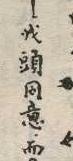 戈頭同意而